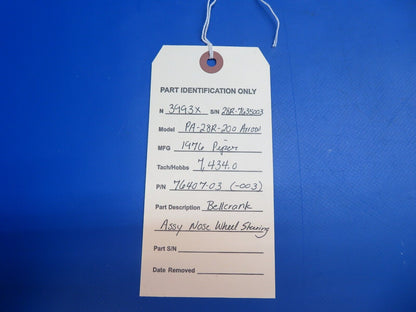 PART IDENTIFICATION ONLY
N 3993X S/N 28R-7635003
Model PA-28R-200 Arrow
MFG 1976 Piper
Tach/Hobbs 7,434.0
P/N 76407-03 (-003)
Part Description Bellcrank
Assy Nose Wheel Steering
Part S/N
Date Removed